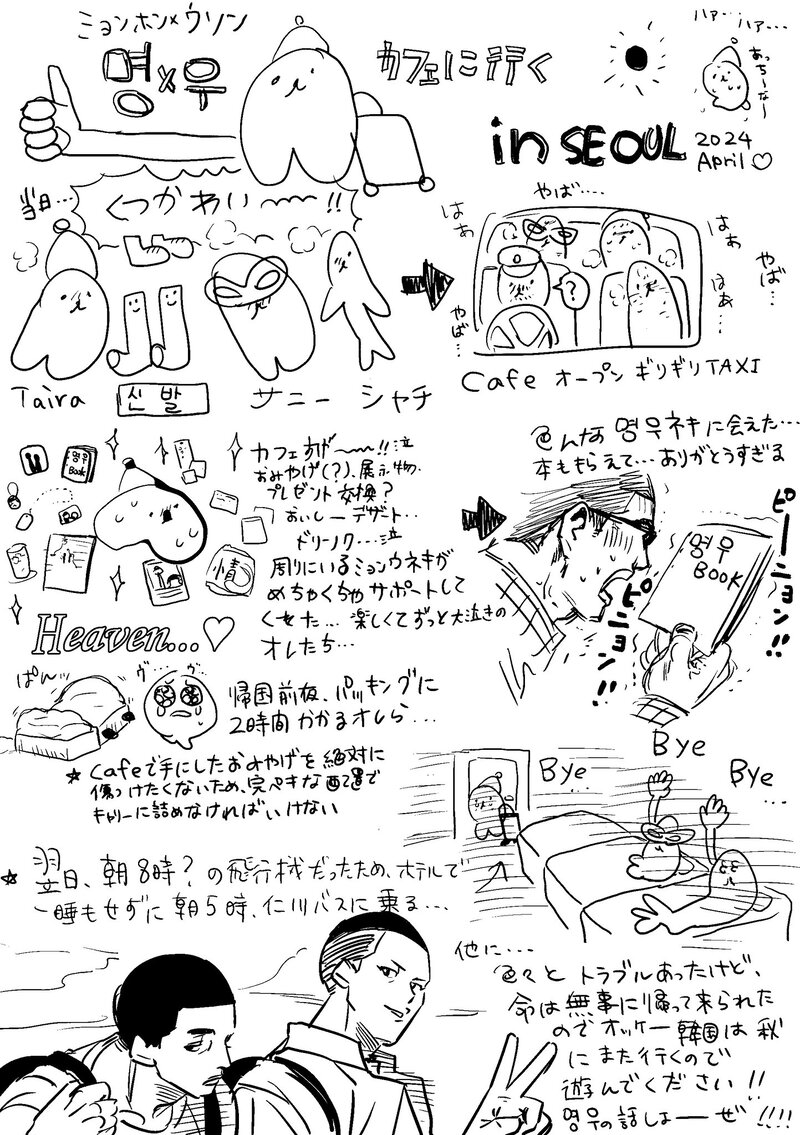 ミョンホン×ウソン
명×우
カフェに行く
ハァ… ハァ…
あっちーなー
in SEOUL
2024
April♡
当日…
くつかわいー〜!!
Taira
신발
サニー
シャチ
やば…
はぁ
はぁ
はぁ…
やば…
やば…
?
Cafe オープン ギリギリTAXI
명우
BOOK
カフェすげー〜!!泣
おみやげ(?)、展示物、
プレゼント交換?
おいしーデザート…
ドリンク…泣
周りにいるミョンウネキが
めちゃくちゃサポートして
くれた… 楽しくてずっと大泣きの
オレたち…
情
Heaven…♡
명우ネキに会えた…
本ももらえて…ありがとうすぎる
명우
BOOK
ピーニョン!!
ピニョン!!
ぱんッ
ヴ…ヴ…
帰国前夜、パッキングに
2時間かかるオレら…
★Cafeで手にしたおみやげを絶対に
傷つけたくないため、完ペキな配置で
キャリーに詰めなければいけない
Bye
Bye
Bye
…
★翌日、朝8時?の飛行機だったため、ホテルで
一睡もせずに朝5時、仁川バスに乗る…
他に…
色々とトラブルあったけど、
命は無事に帰って来られた
のでオッケー 韓国は秋
にまた行くので
遊んでください!!
명우の話しよーぜ!!!!